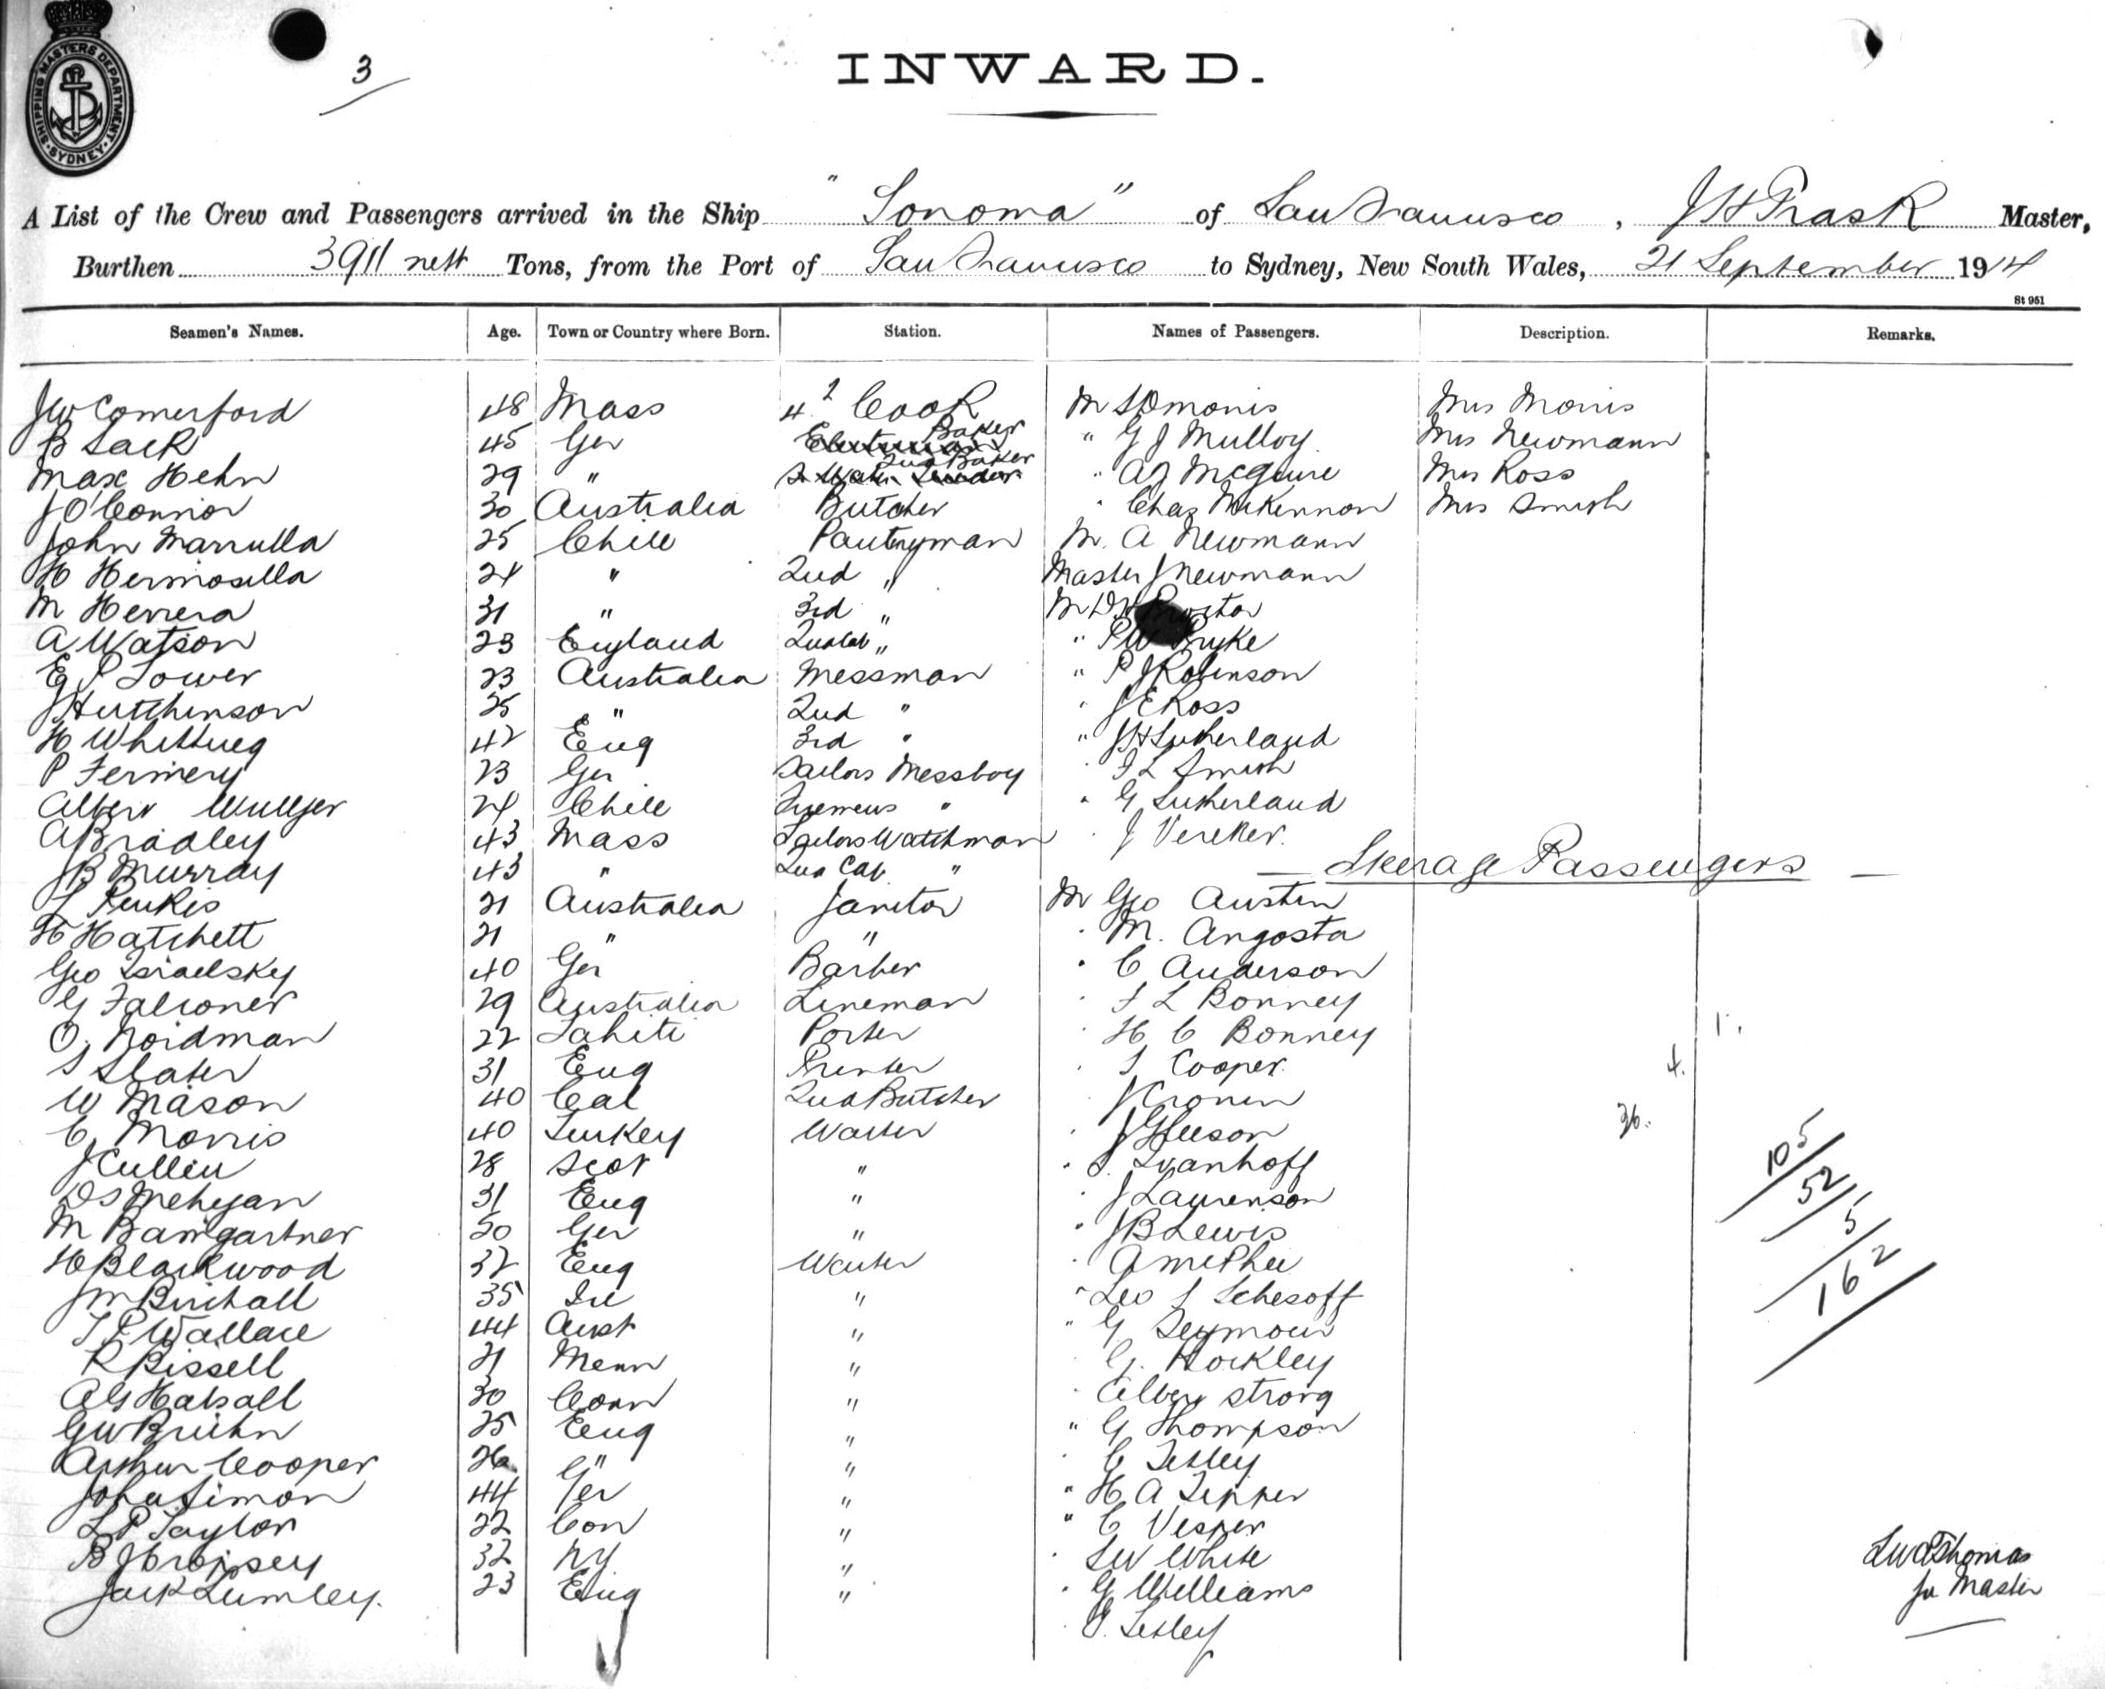 SHIPPING MASTERS DEPARTMENT. SYDNEY.
3
INWARD.
A List of the Crew and Passengers arrived in the Ship "Sonoma" of San Francisco, J H Trask Master,
Burthen 3911 nett Tons, from the Port of San Francisco to Sydney, New South Wales, 21 September 1914
St 951
Seamen's Names. Age. Town or Country where Born. Station. Names of Passengers. Description. Remarks.
J W Comerford 48 Mass 4 Cook M Mrs Morris
B Sack 45 Ger Baker " G J Mulloy Mrs Newmann
Max Hehn 29 " 2nd Baker " A J McGuire Mrs Ross
J O'Connor 30 Australia Butcher " Chas McKinnon Mrs Smith
John Marrulla 25 Chile Pantryman M. A Newmann
H Hermosilla 24 " 2nd " Master J Newmann
M Herrera 31 " 3rd " M Proctor
A Watson 23 England 2nd Cab " " P W Pryke
E P Lower 23 Australia Messman " P J Robinson
J Hutchinson 25 " 2nd " " J E Ross
H Whitting 42 Eng 3rd " " J H Sutherland
P Fermery 23 Ger Sailors Messboy " F L Smith
Albert 24 Chile Firemens " " G Sutherland
A Bradley 43 Mass Sailors Watchman " J Vereker.
J B Murray 43 " 2nd Cab. " — Steerage Passengers —
J Perkis 21 Australia Janitor M Geo Austin
H Hatchett 21 " " " M. Angosta
Geo Israelsky 40 Ger Barber " C Anderson
G Falconer 29 Australia Lineman " F L Bonney
O. Noidman 22 Tahiti Porter " H C Bonney 1.
S Slater 31 Eng Printer " S Cooper. 4.
W Mason 40 Cal 2nd Butcher " J Cronin
C. Morris 40 Turkey Waiter " J Gleeson 36.
J Cullen 28 Scot " " S. Ivanhoff 105
D S Mehegan 31 Eng " " J Laurenson 52
M Bamgartner 20 Ger " " J B Lewis 5
H Blackwood 32 Eng Waiter " A McPhee 162
J M Birchall 35 Ire " " Leo S Schesoff
T P Wallace 44 Aust " " G Seymour
R Bissell 21 Menn " " G. Hockley
A G Hatsall 30 Conn " " Albert Strong
G W Bruhn 25 Eng " " G Thompson
Arthur Cooper 26 " " " C Tetley
John Simon 44 Ger " " H A Tipper
L P Taylor 22 Con " " C Vesper
B J Cropsey 32 NY " " S W White
Jack Lumley. 23 Eng " " G Williams
Thomas
for Master
" Tetley